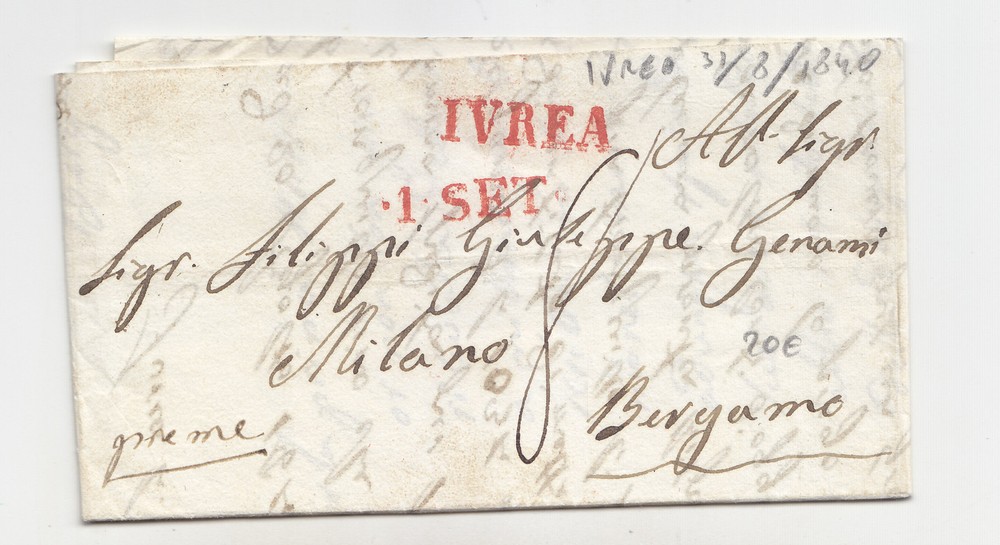 Ivrea 31/8/1840
IVREA
All. Sigr.
·1· SET·
Sigr. Filippi Giuseppe. Genami
Milano
20€
Bergamo
preme